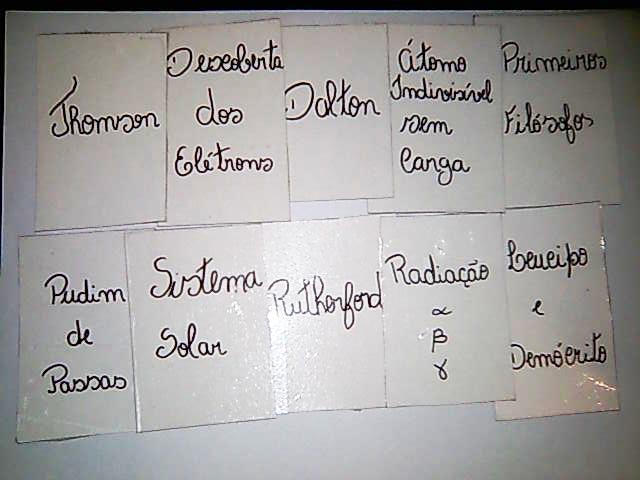 Thomson
Descoberta
dos
Elétrons
Dalton
Átomo
Indivisível
sem
Carga
Primeiros
Filósofos
Pudim
de
Passas
Sistema
Solar
Rutherford
Radiação
α
β
γ
Leucipo
e
Demócrito